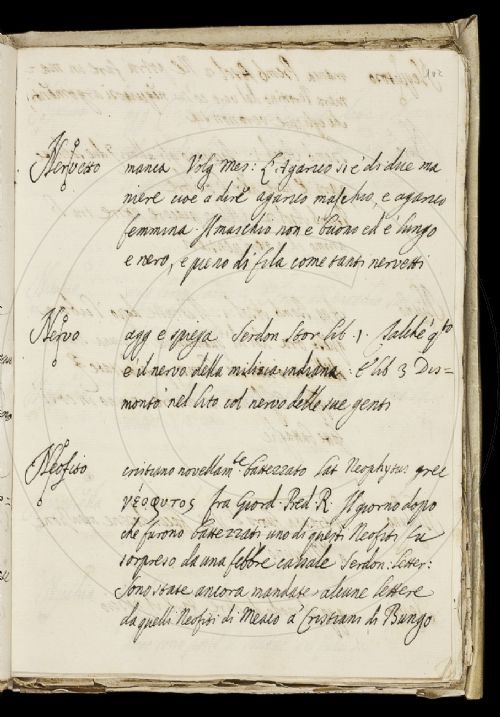 102
Nervetto manca Volg. Mes: L'Agarico si è di due ma
niere cioè à dire agarico maschio, e agarico
femmina Il maschio non è buono ed è lungo
e nero, e pieno di fila come tanti nervetti
Nervo agg e spiega Serdon Stor lib. 1. Talchè q.to
e il nervo della milizia indiana. E lib 3 Dis=
montò nel lito col nervo delle sue genti
Neofito cristiano novellam.te battezzato lat Neophytus grec
νεοφυτος fra Giord. Pred. R. Il giorno dopo
che furono battezzati uno di questi Neofiti fu
sorpreso da una febbre Serdon: letter:
Sono state ancora mandate alcune lettere
da quelli Neofiti di Meaco à Cristiani di Bungo